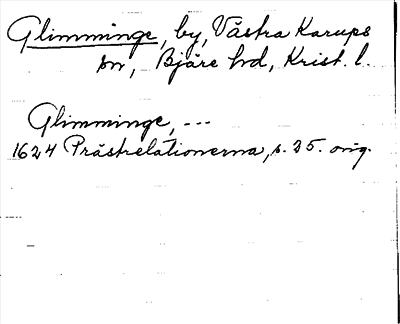 Glimminge, by, Västra Karups
sn, Bjäre hd, Krist. l.
Glimminge, ---
1624 Prästrelationerna, s. 25. orig.